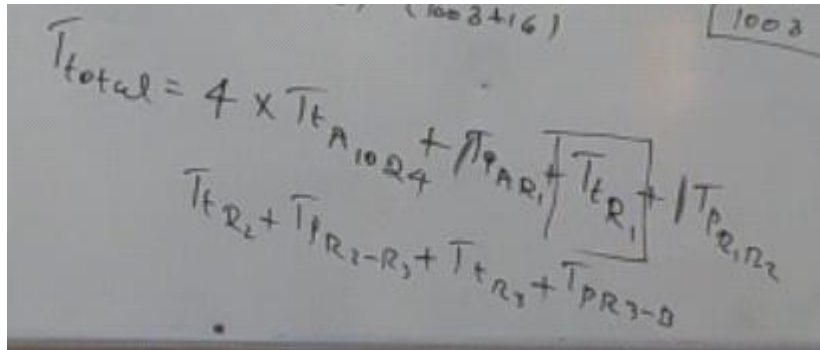 (1008+16)
1008
T_total = 4 × Tt_A 1024 + Tp_AR1 + Tt_R1 + Tp_R1R2
Tt_R2 + Tp_R2-R3 + Tt_R3 + Tp_R3-B